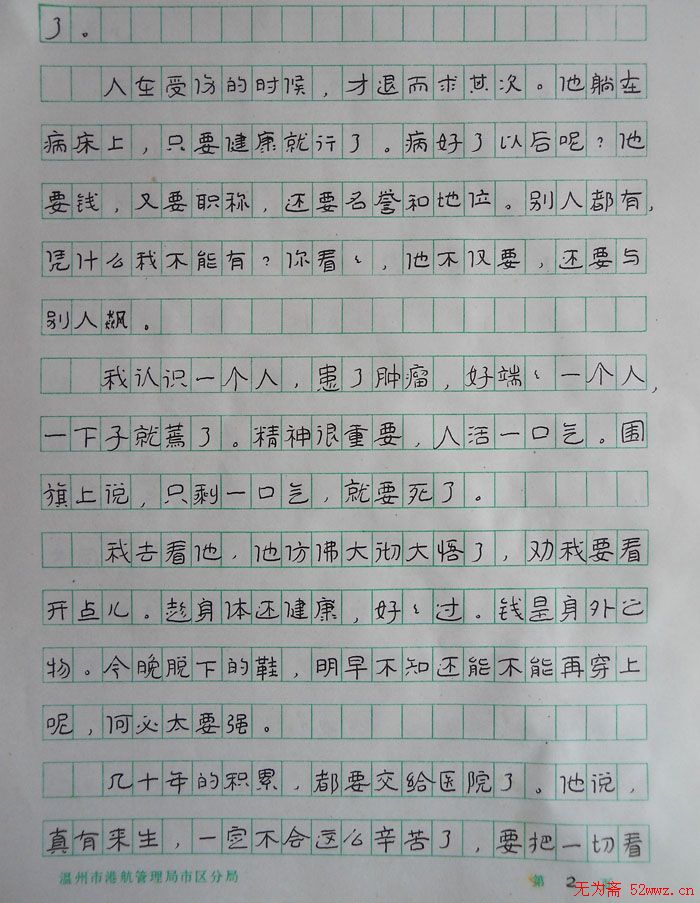 了。
人在受伤的时候，才退而求其次。他躺在
病床上，只要健康就行了。病好了以后呢？他
要钱，又要职称，还要名誉和地位。别人都有，
凭什么我不能有？你看〻，他不仅要，还要与
别人飙。
我认识一个人，患了肿瘤，好端〻一个人，
一下子就蔫了。精神很重要，人活一口气。围
旗上说，只剩一口气，就要死了。
我去看他，他仿佛大彻大悟了，劝我要看
开点儿。趁身体还健康，好〻过。钱是身外之
物。今晚脱下的鞋，明早不知还能不能再穿上
呢，何必太要强。
几十年的积累，都要交给医院了。他说，
真有来生，一定不会这么辛苦了，要把一切看
温州市港航管理局市区分局
第 2
无为斋 52wwz.cn